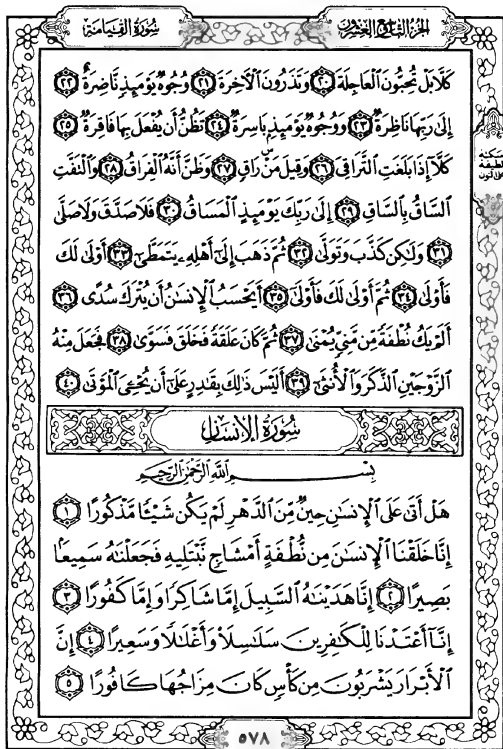 الجزء التاسع والعشرون
سورة القيامة
كَلَّا بَلْ تُحِبُّونَ ٱلْعَاجِلَةَ ٢٠ وَتَذَرُونَ ٱلْءَاخِرَةَ ٢١ وُجُوهٌ يَوْمَئِذٍ نَّاضِرَةٌ ٢٢
إِلَىٰ رَبِّهَا نَاظِرَةٌ ٢٣ وَوُجُوهٌ يَوْمَئِذٍۭ بَاسِرَةٌ ٢٤ تَظُنُّ أَن يُفْعَلَ بِهَا فَاقِرَةٌ ٢٥
كَلَّآ إِذَا بَلَغَتِ ٱلتَّرَاقِىَ ٢٦ وَقِيلَ مَنْۜ رَاقٍ ٢٧ وَظَنَّ أَنَّهُ ٱلْفِرَاقُ ٢٨ وَٱلْتَفَّتِ
ٱلسَّاقُ بِٱلسَّاقِ ٢٩ إِلَىٰ رَبِّكَ يَوْمَئِذٍ ٱلْمَسَاقُ ٣٠ فَلَا صَدَّقَ وَلَا صَلَّىٰ
٣١ وَلَٰكِن كَذَّبَ وَتَوَلَّىٰ ٣٢ ثُمَّ ذَهَبَ إِلَىٰٓ أَهْلِهِۦ يَتَمَطَّىٰٓ ٣٣ أَوْلَىٰ لَكَ
فَأَوْلَىٰ ٣٤ ثُمَّ أَوْلَىٰ لَكَ فَأَوْلَىٰٓ ٣٥ أَيَحْسَبُ ٱلْإِنسَٰنُ أَن يُتْرَكَ سُدًى ٣٦
أَلَمْ يَكُ نُطْفَةً مِّن مَّنِىٍّ يُمْنَىٰ ٣٧ ثُمَّ كَانَ عَلَقَةً فَخَلَقَ فَسَوَّىٰ ٣٨ فَجَعَلَ مِنْهُ
ٱلزَّوْجَيْنِ ٱلذَّكَرَ وَٱلْأُنثَىٰٓ ٣٩ أَلَيْسَ ذَٰلِكَ بِقَٰدِرٍ عَلَىٰٓ أَن يُحْۦِىَ ٱلْمَوْتَىٰ ٤٠
سورة الإنسان
بِسْمِ ٱللَّهِ ٱلرَّحْمَٰنِ ٱلرَّحِيمِ
هَلْ أَتَىٰ عَلَى ٱلْإِنسَٰنِ حِينٌ مِّنَ ٱلدَّهْرِ لَمْ يَكُن شَيْـًٔا مَّذْكُورًا ١
إِنَّا خَلَقْنَا ٱلْإِنسَٰنَ مِن نُّطْفَةٍ أَمْشَاجٍ نَّبْتَلِيهِ فَجَعَلْنَٰهُ سَمِيعًۢا
بَصِيرًا ٢ إِنَّا هَدَيْنَٰهُ ٱلسَّبِيلَ إِمَّا شَاكِرًا وَإِمَّا كَفُورًا ٣
إِنَّآ أَعْتَدْنَا لِلْكَٰفِرِينَ سَلَٰسِلَا۟ وَأَغْلَٰلًا وَسَعِيرًا ٤ إِنَّ
ٱلْأَبْرَارَ يَشْرَبُونَ مِن كَأْسٍ كَانَ مِزَاجُهَا كَافُورًا ٥
سكتة
لطيفة
على النون
٥٧٨